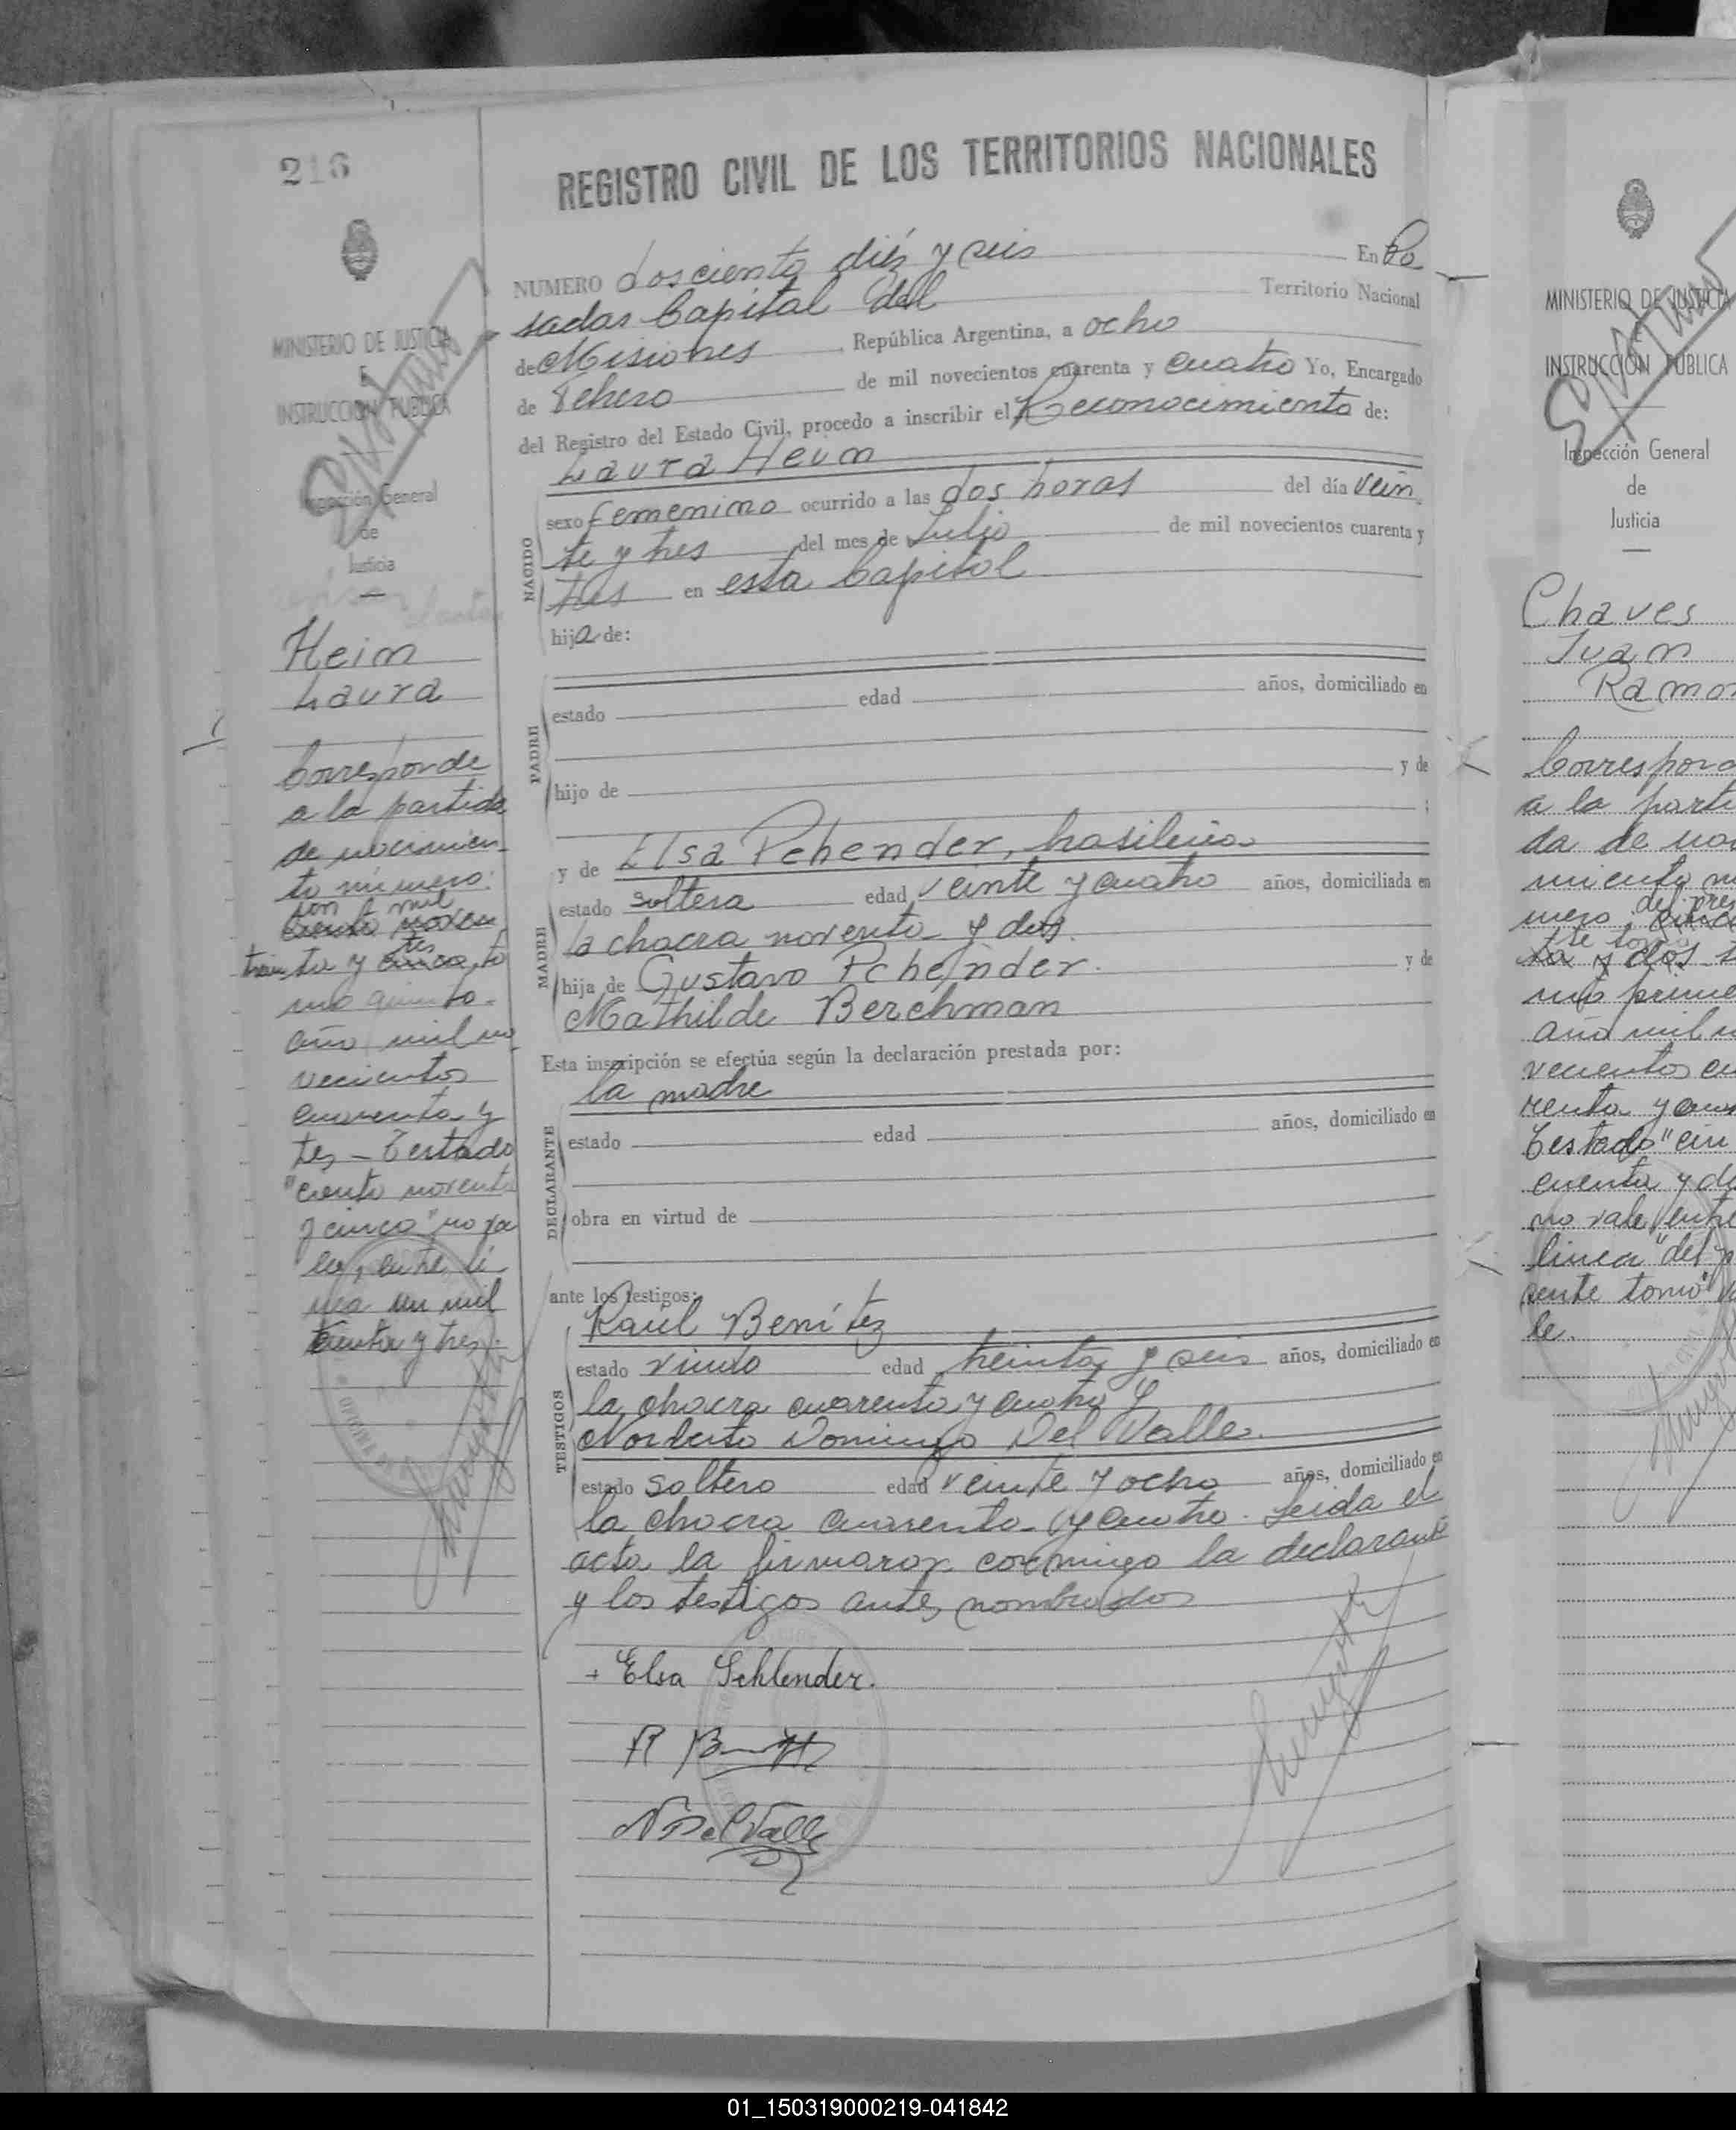 216
MINISTERIO DE JUSTICIA
E
INSTRUCCIÓN PUBLICA
Inspección General
de
Justicia
Heim
Laura
Corresponde
a la partida
de nacimien-
to número:
un mil
ciento noven
tres
treinta y cinco, to
mo quinto
año mil no
vecientos
cuarenta y
tres - Testado
"ciento noventa
y cinco" no va
le, entre li
nea un mil
treinta y tres.
REGISTRO CIVIL DE LOS TERRITORIOS NACIONALES
NUMERO doscientos diéz y seis En Po
sadas Capital del Territorio Nacional
de Misiones, República Argentina, a ocho
de Febrero de mil novecientos cuarenta y cuatro Yo, Encargado
del Registro del Estado Civil, procedo a inscribir el Reconocimiento de:
Laura Heim
NACIDO
sexo femenino ocurrido a las dos horas del día vein
te y tres del mes de Julio de mil novecientos cuarenta y
tres en esta Capital
hija de:
PADRE
estado edad años, domiciliado en
hijo de y de
;
y de Elsa Pehender, brasileña
MADRE
estado soltera edad veinte y cuatro años, domiciliada en
la chacra noventa y dos.
hija de Gustavo Pchender. y de
Mathilde Berchman
Esta inscripción se efectúa según la declaración prestada por:
la madre
DECLARANTE
estado edad años, domiciliado en
obra en virtud de
ante los testigos:
Raúl Benítez
TESTIGOS
estado viudo edad treinta y seis años, domiciliado en
la chacra cuarenta y cuatro y
Norberto Domingo Del Valle.
estado soltero edad veinte y ocho años, domiciliado en
la chacra cuarenta y cuatro. Leida el
acta la firmaron conmigo la declarante
y los testigos antes nombrados
+ Elsa Schlender.
R Benítez
N D del Valle
MINISTERIO DE JUSTICIA
E
INSTRUCCIÓN PUBLICA
Inspección General
de
Justicia
Chaves
Juan
Ramon
Correspond
a la parti
da de naci
miento nú
mero
del pres
te tomo
ta y dos
mo prime
año mil n
vecientos cu
renta y cua
Testado "cin
cuenta y do
no vale, entre
linea "del p
sente tomo" va
le.
01_150319000219-041842